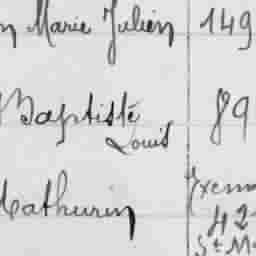 n Marie Julien 149
Baptiste 89
Louis
Mathurin Exem
42
St M